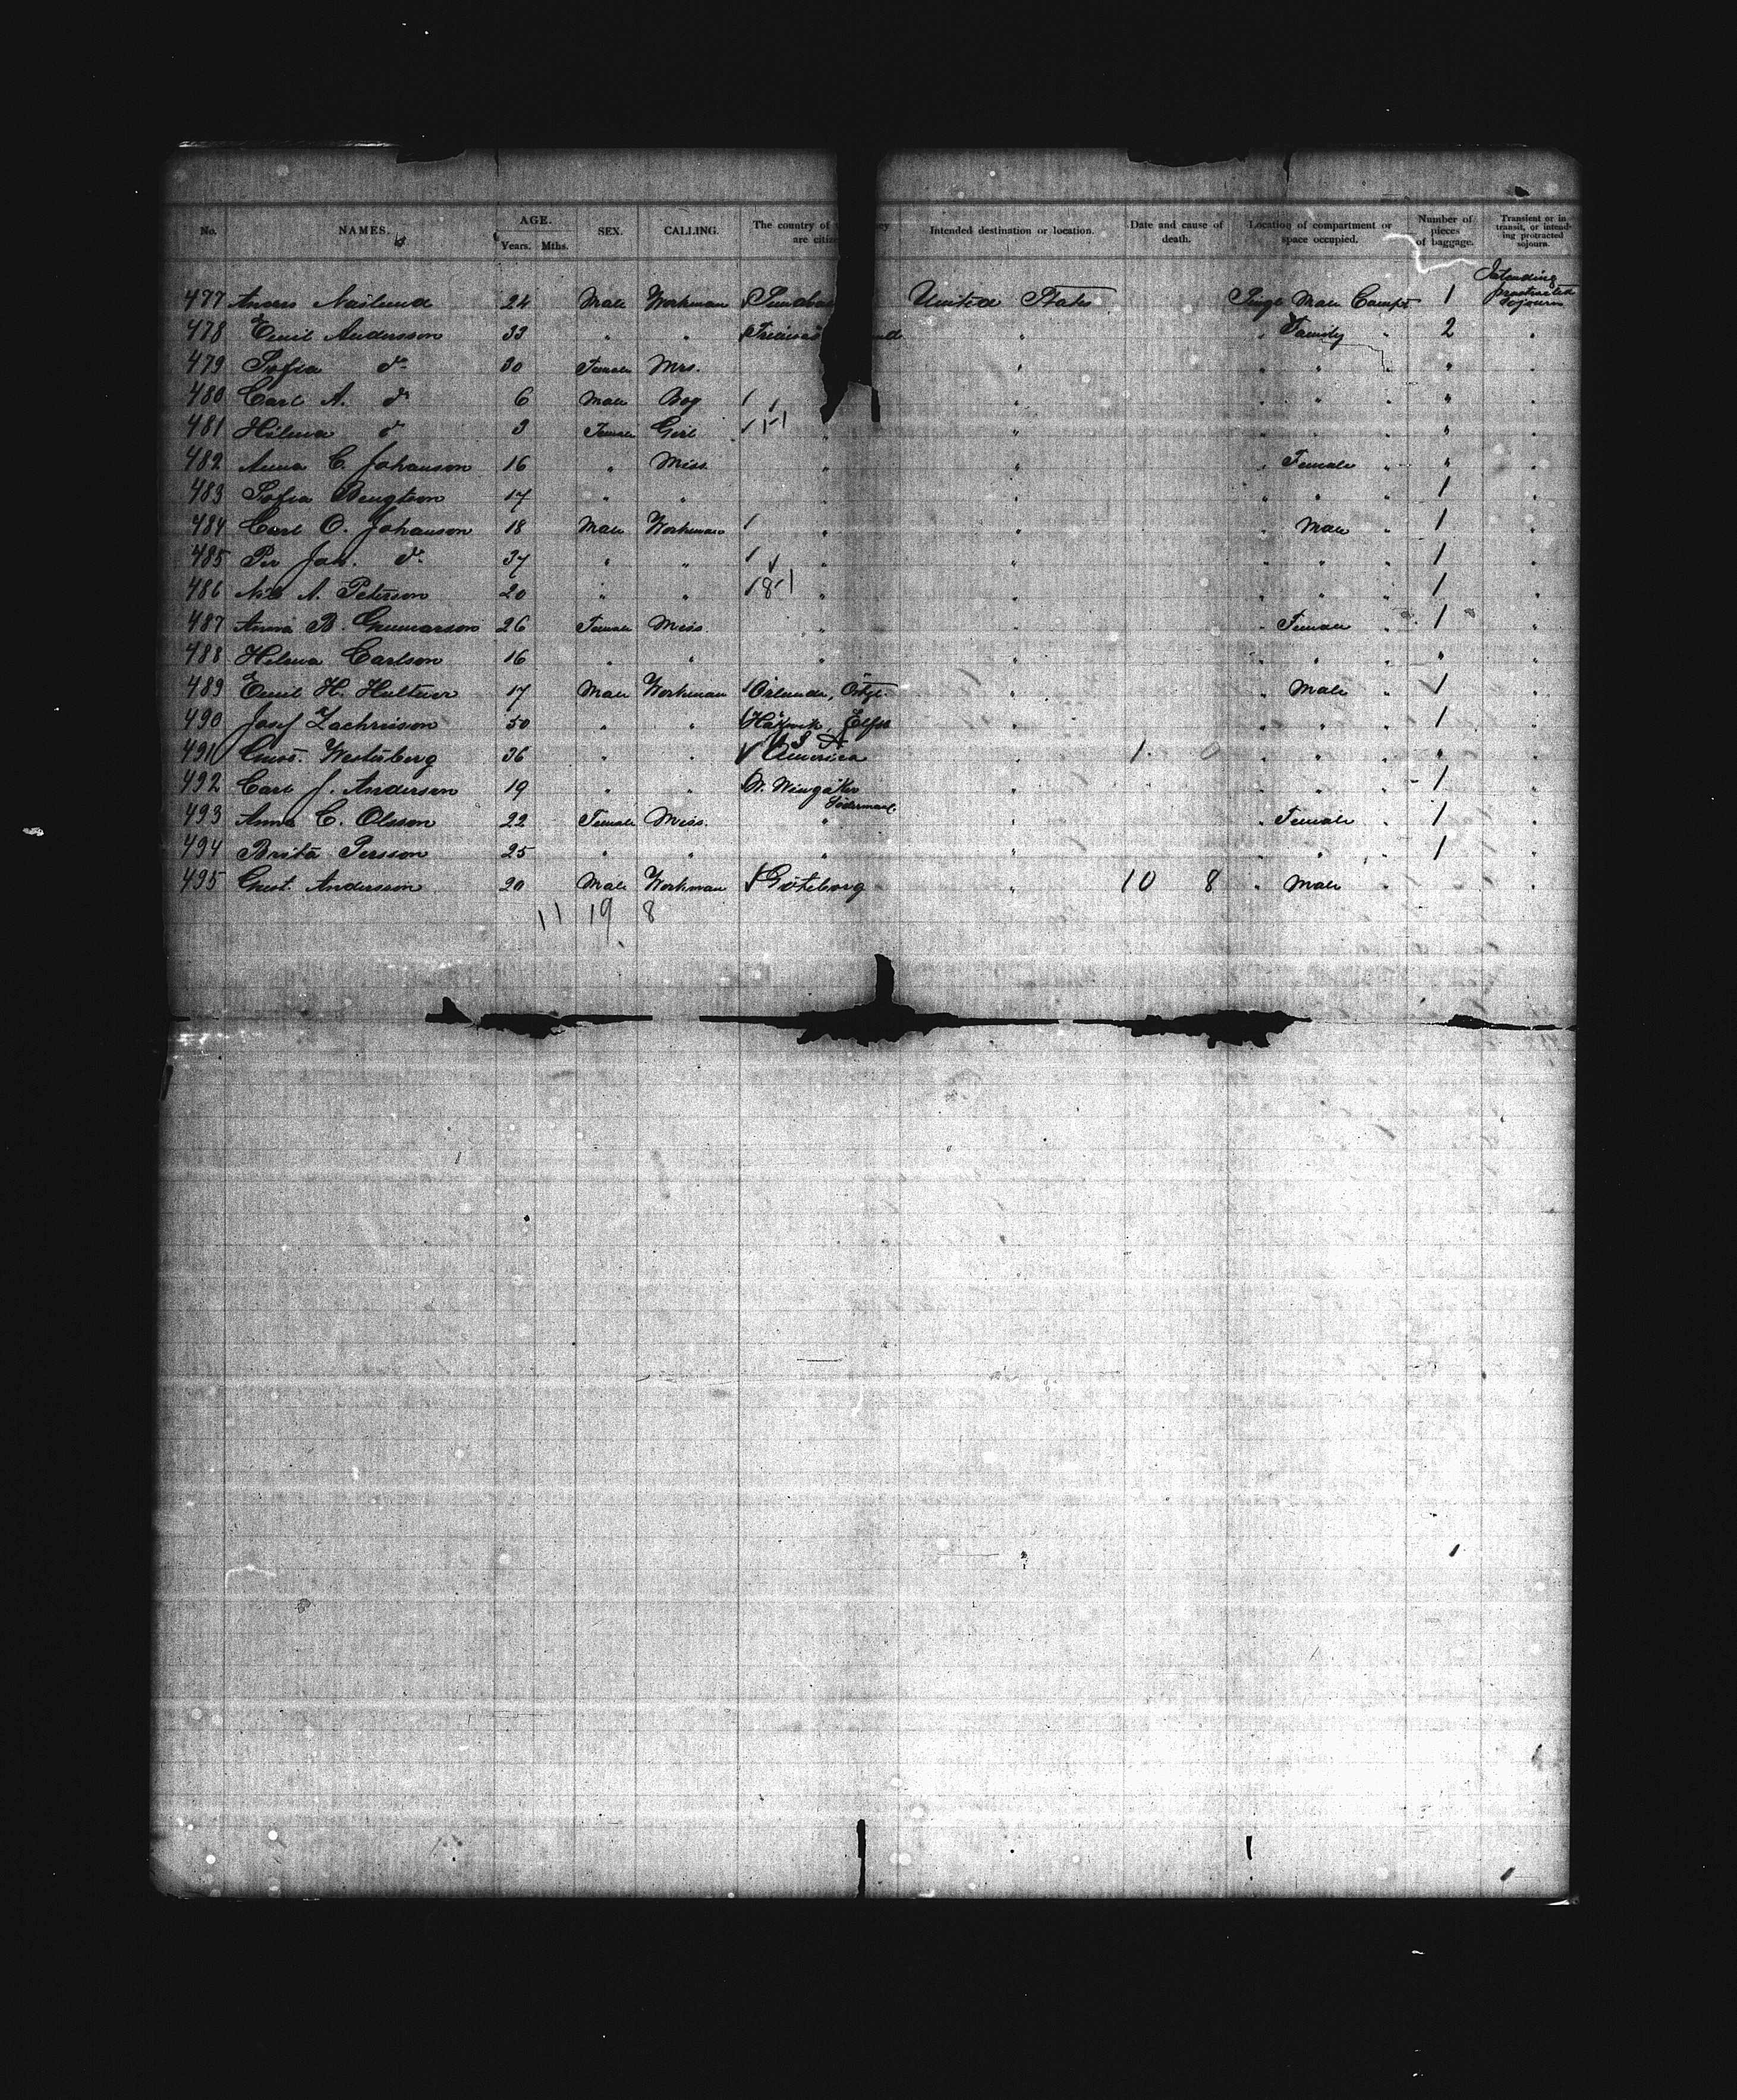 No. NAMES. AGE. Years. Mths. SEX. CALLING. The country of are citiz Intended destination or location. Date and cause of death. Location of compartment or space occupied. Number of pieces of baggage. Transient or in transit, or intend- ing protracted sojourn.
477 Anders Naslund 24 Male Workman United States Single Male Compt 1 Intending protracted sojourn
478 Emil Andersson 33 " " " " Family " 2 "
479 Sofia do 30 Female Mrs. " " " " " "
480 Carl A. do 6 Male Boy " " " " " "
481 Hilma do 3 Female Girl " " " " " " "
482 Anna C. Johanson 16 " Miss " " " Female " " "
483 Sofia Bengtson 17 " " " " " " " 1 "
484 Carl O. Johanson 18 Male Workman " " " Male " 1 "
485 Per Joh. do 37 " " " " " " " 1 "
486 Nils A. Peterson 20 " " 181 " " " " " 1 "
487 Anna B. Gunnarson 26 Female Miss " " " Female " 1 "
488 Helena Carlson 16 " " " " " " " " "
489 Emil H. Hultner 17 Male Workman " " Male " 1 "
490 Josef Zachrison 50 " " " " " " 1 "
491 Westerberg 36 " " U S A America " 1 0 " " " " "
492 Carl J. Anderson 19 " " W. Wingåker Södermanl. " " " " 1 "
493 Anna C. Olsson 22 Female Miss. " " " Female " 1 "
494 Brita Persson 25 " " " " " " " 1 "
495 Gust. Andersson 20 Male Workman Göteborg " 10 8 " Male " "
11 19 8